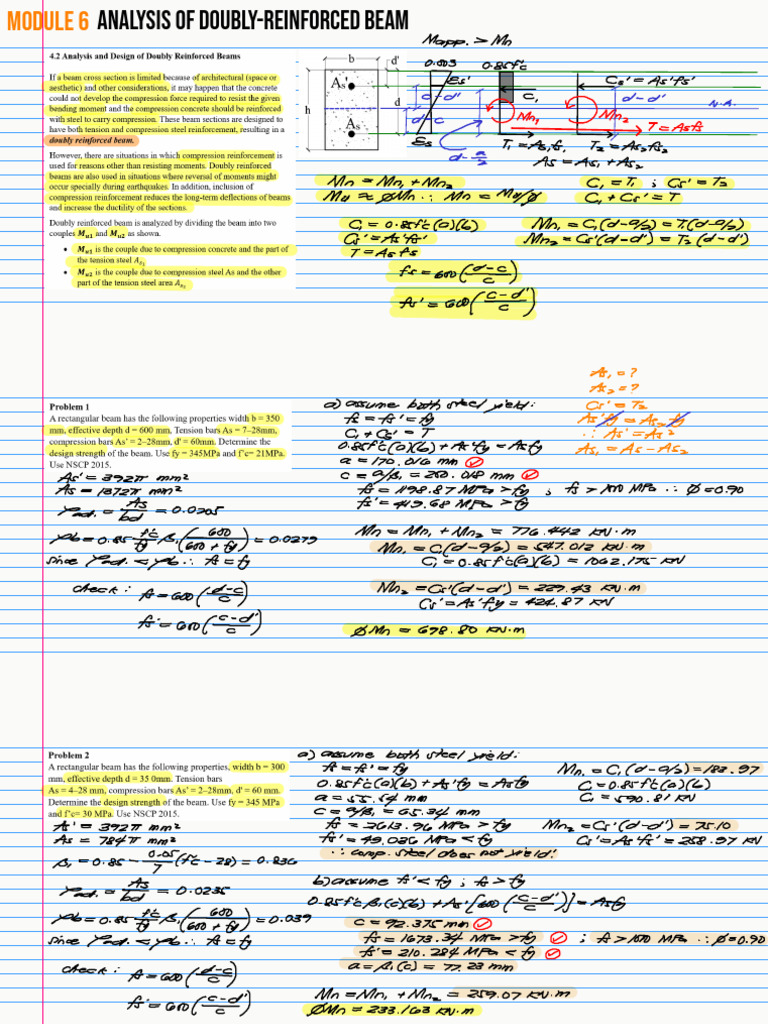 MODULE 6 ANALYSIS OF DOUBLY-REINFORCED BEAM
4.2 Analysis and Design of Doubly Reinforced Beams
If a beam cross section is limited because of architectural (space or
aesthetic) and other considerations, it may happen that the concrete
could not develop the compression force required to resist the given
bending moment and the compression concrete should be reinforced
with steel to carry compression. These beam sections are designed to
have both tension and compression steel reinforcement, resulting in a
doubly reinforced beam.
However, there are situations in which compression reinforcement is
used for reasons other than resisting moments. Doubly reinforced
beams are also used in situations where reversal of moments might
occur specially during earthquakes. In addition, inclusion of
compression reinforcement reduces the long-term deflections of beams
and increase the ductility of the sections.
Doubly reinforced beam is analyzed by dividing the beam into two
couples Mu1 and Mu2 as shown.
• Mu1 is the couple due to compression concrete and the part of
the tension steel As1
• Mu2 is the couple due to compression steel As and the other
part of the tension steel area As2
Mapp. > Mn
b
d'
h
d
As'
As
0.003
εs'
d-d'
d-c
εs
0.85f'c
C1
d-a/2
Mn1
Cs' = As'fs'
d-d'
N.A.
Mn2
T = Asfs
T1 = As1fs
T2 = As2fs
As = As1 + As2
Mn = Mn1 + Mn2
C1 = T1 ; Cs' = T2
Mu = ØMn ∴ Mn = Mu/Ø
C1 + Cs' = T
C1 = 0.85f'c(a)(b)
Mn1 = C1(d-a/2) = T1(d-a/2)
Cs' = As'fs'
Mn2 = Cs'(d-d') = T2(d-d')
T = Asfs
fs = 600(d-c/c)
fs' = 600(c-d'/c)
Problem 1
A rectangular beam has the following properties width b = 350
mm, effective depth d = 600 mm, Tension bars As = 7–28mm,
compression bars As' = 2–28mm, d' = 60mm. Determine the
design strength of the beam. Use fy = 345MPa and f'c= 21MPa.
Use NSCP 2015.
As' = 392π mm²
As = 1372π mm²
ρact. = As/bd = 0.0205
ρb = 0.85 f'c/fy β1 (600/600 + fy) = 0.0279
since ρact. < ρb ∴ fs = fy
check : fs = 600(d-c/c)
fs' = 600(c-d'/c)
a) assume both steel yield:
fs = fs' = fy
C1 + Cs' = T
0.85f'c(a)(b) + As'fy = Asfy
a = 170.016 mm
c = a/β1 = 200.018 mm
fs = 1198.87 MPa > fy ; fs > 1000 MPa ∴ Ø = 0.90
fs' = 419.68 MPa > fy
Mn = Mn1 + Mn2 = 776.442 kN·m
Mn1 = C1(d-a/2) = 547.012 kN·m
C1 = 0.85f'c(a)(b) = 1062.175 kN
Mn2 = Cs'(d-d') = 229.43 kN·m
Cs' = As'fy = 424.87 kN
ØMn = 698.80 kN·m
As1 = ?
As2 = ?
Cs' = T2
As'fy = As2fy
∴ As' = As2
As1 = As - As2
Problem 2
A rectangular beam has the following properties, width b = 300
mm, effective depth d = 35 0mm. Tension bars
As = 4–28 mm, compression bars As' = 2–28mm, d' = 60 mm.
Determine the design strength of the beam. Use fy = 345 MPa
and f'c= 30 MPa. Use NSCP 2015.
As' = 392π mm²
As = 784π mm²
β1 = 0.85 - 0.05/7 (f'c - 28) = 0.836
ρact. = As/bd = 0.0235
ρb = 0.85 f'c/fy β1 (600/600 + fy) = 0.039
since ρact. < ρb ∴ fs = fy
check : fs = 600(d-c/c)
fs' = 600(c-d'/c)
a) assume both steel yield:
fs = fs' = fy
0.85f'c(a)(b) + As'fy = Asfy
a = 55.54 mm
c = a/β1 = 65.34 mm
fs = 2613.96 MPa > fy
fs' = 49.036 MPa < fy
∴ comp. steel does not yield!
b) assume fs' < fy ; fs > fy
0.85f'c β1(c)(b) + As'[600(c-d'/c)] = Asfy
c = 92.375 mm
fs = 1673.34 MPa > fy ; fs > 1000 MPa ∴ Ø = 0.90
fs' = 210.284 MPa < fy
a = β1(c) = 77.23 mm
Mn = Mn1 + Mn2 = 259.07 kN·m
ØMn = 233.163 kN·m
Mn1 = C1(d-a/2) = 183.97
C1 = 0.85f'c(a)(b)
C1 = 590.81 kN
Mn2 = Cs'(d-d') = 75.10
Cs' = As'fs' = 258.97 kN